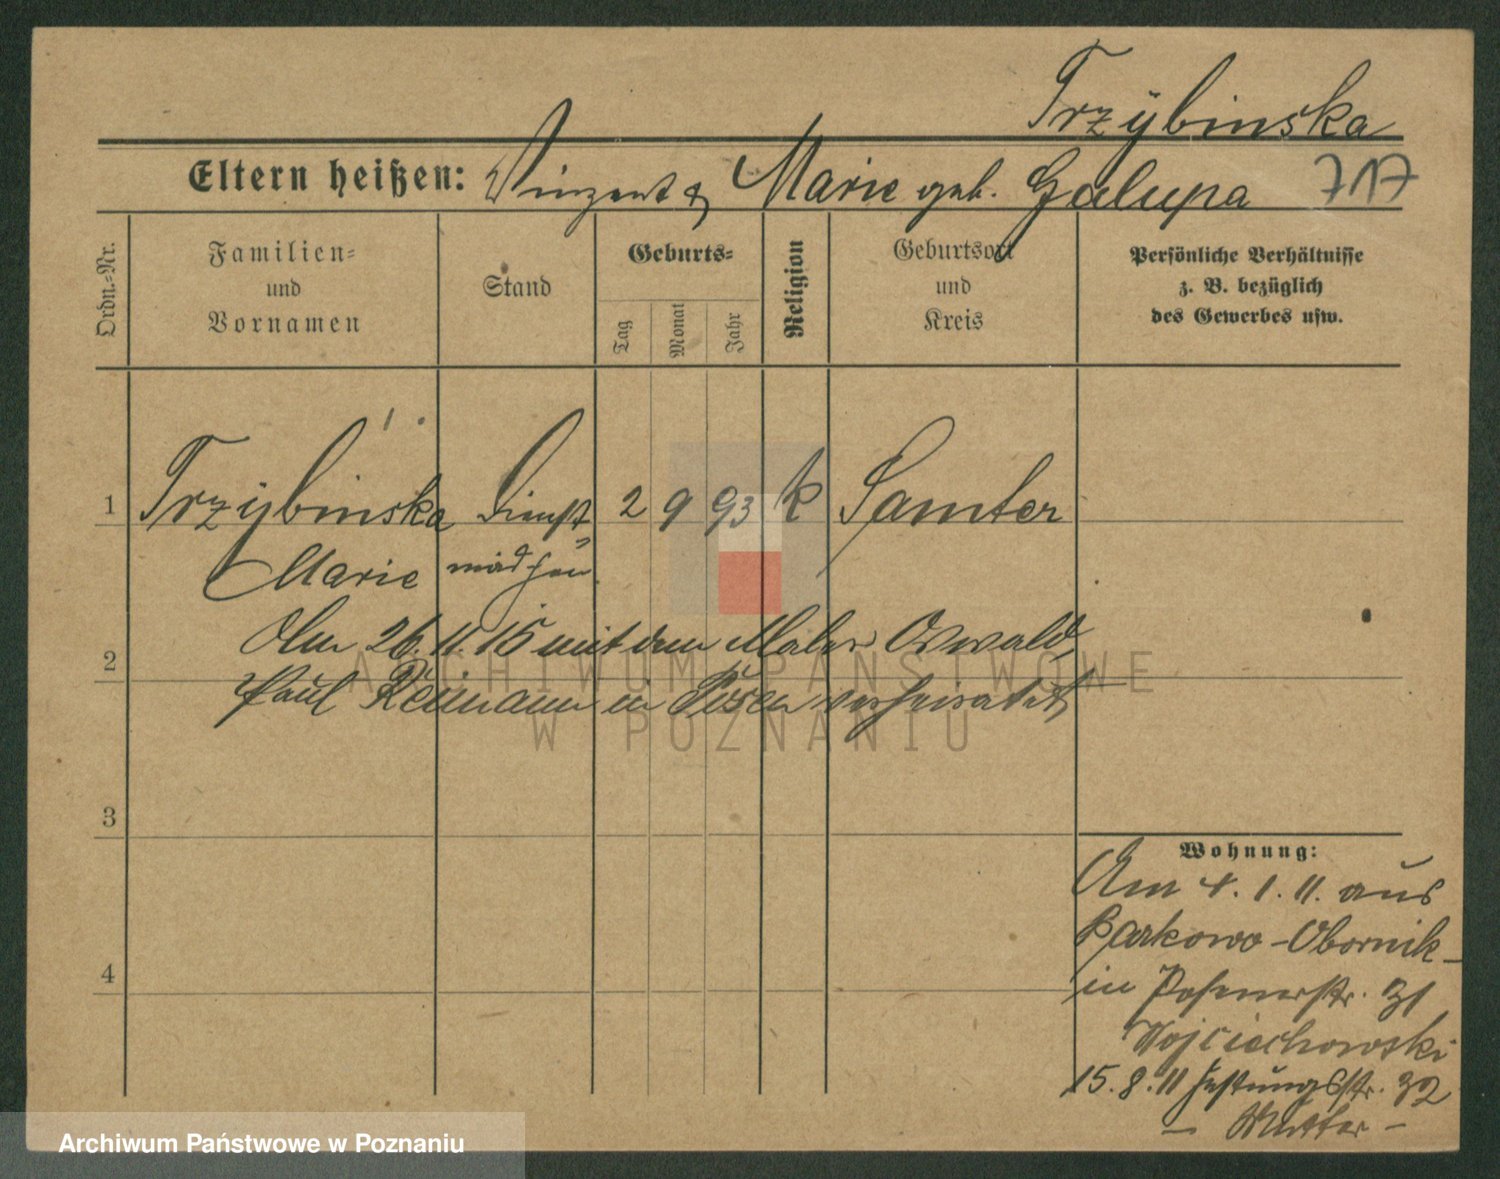 Trzÿbinska
Eltern heißen: Vinzent & Marie geb. Galupa 717
Ordn.-Nr.
Familien-
und
Vornamen
Stand
Geburts-
Tag
Monat
Jahr
Religion
Geburtsort
und
Kreis
Persönliche Verhältnisse
z. B. bezüglich
des Gewerbes usw.
1 Trzÿbinska Dienst 2 9 93 k Samter
Marie mädchen
Am 26.11.15 mit dem Maler Oswald,
2
Paul Reimann in Posen verheiratet
ARCHIWUM PAŃSTWOWE
W POZNANIU
3
4
Wohnung:
Am 4.1.11. aus
Parkowo-Obornik-
in Posenerstr. 31
Wojciechowski
15.8.11 Festungsstr. 32
- Mutter -
Archiwum Państwowe w Poznaniu